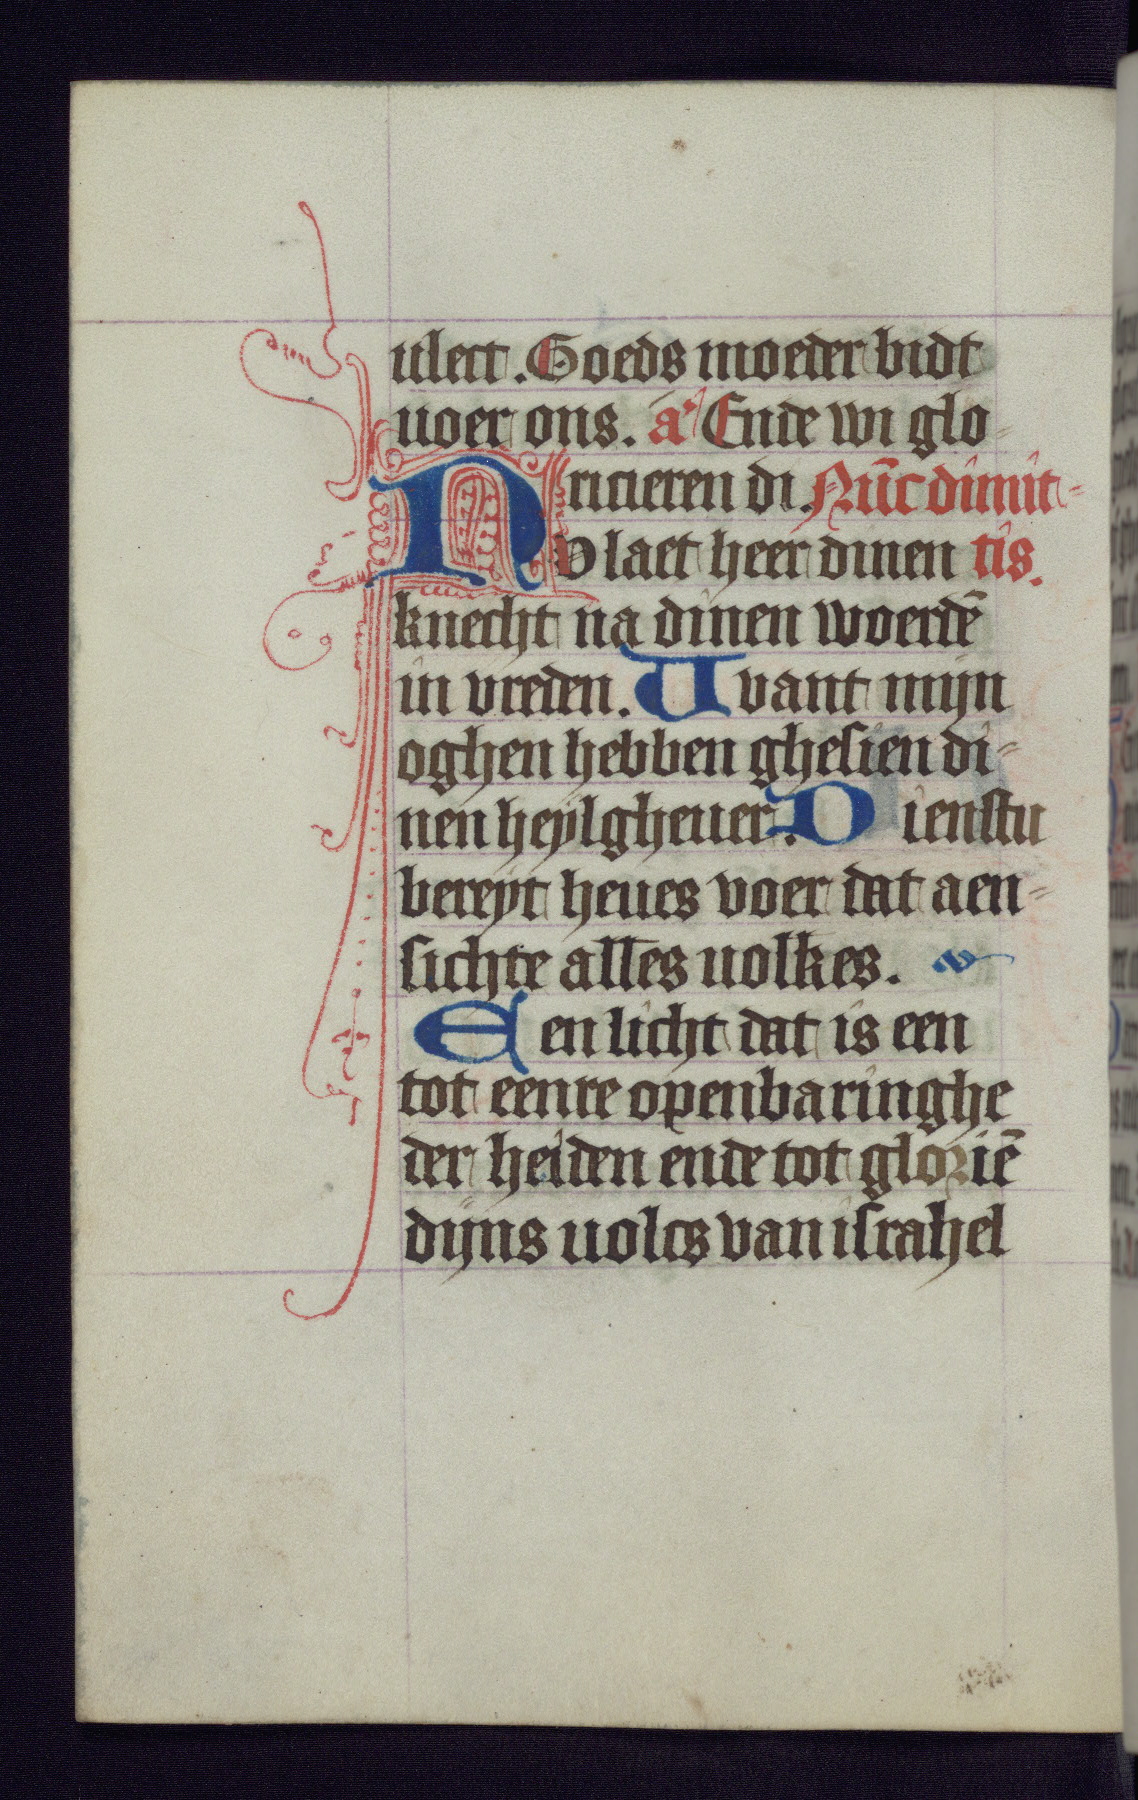 ulect. Goeds moeder bidt
uoer ons. a Ende wi glo
ricieren di. Nūc dimit-
Nv laet heer dinen tis.
knecht na dinen woerdē
in vreden. Want mijn
oghen hebben ghesien di-
nen heylgheuer. Dienstu
bereyt heues voer dat aen-
sichte alles uolkes.
Een licht dat is een
tot eenre openbaringhe
der heiden ende tot gloriē
dijns uolcs van israhel